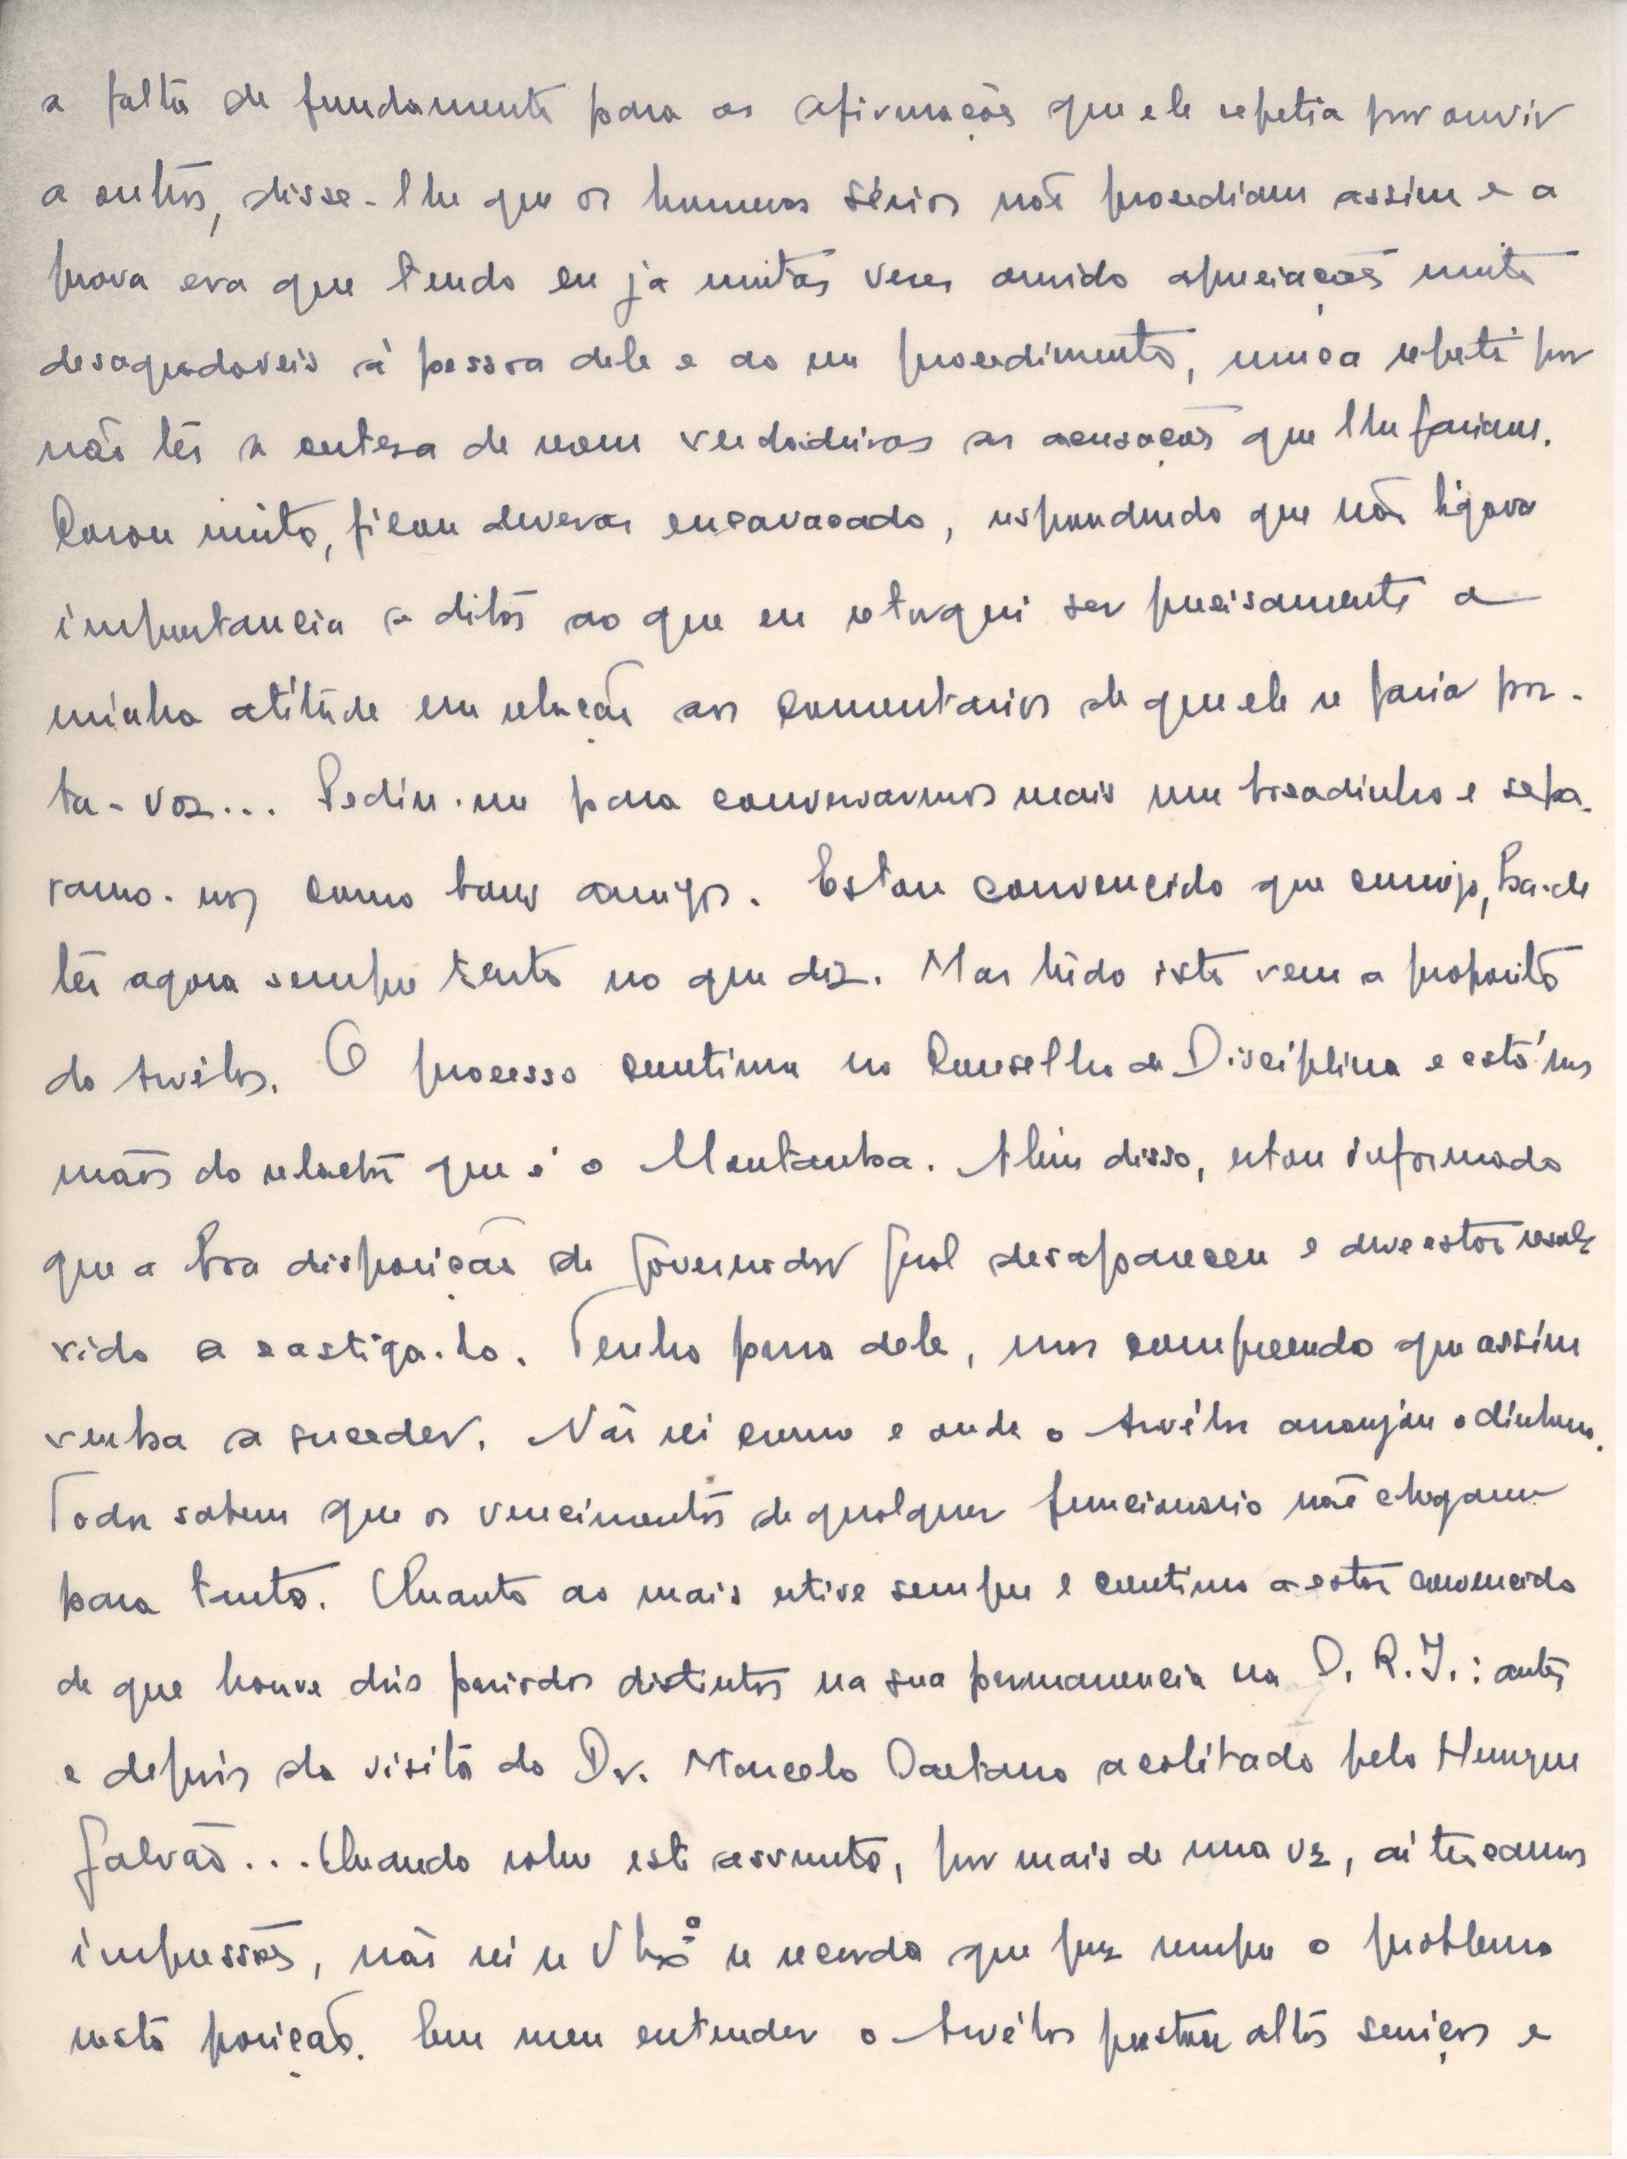 a falta de fundamento para as afirmações que ele repetia por ouvir
a outros, disse-lhe que os homens sérios não procediam assim e a
prova era que tendo eu já muitas vezes ouvido apreciações muito
desagradaveis à pessoa dele e ao seu procedimento, nunca repeti por
não ter a certesa de serem verdadeiras as acusações que lhe faziam.
Corou muito, ficou deveras encavacado, respondendo que não ligava
importancia a ditos ao que eu retorqui ser precisamente a
minha atitude em relação aos comentarios de que ele se fazia por-
ta-voz... Pediu-me para conversarmos mais um bocadinho e sepa-
ramo-nos como bons amigos. Estou convencido que comigo, ha-de
ter agora sempre tento no que diz. Mas tudo isto vem a proposito
do Arvélos. O processo continua no Conselho de Disciplina e está nas
mãos do relactor que é o Montanha. Alem disso, estou informado
que a boa disposição do Governador Geral desapareceu e deve estar resol-
vido a castiga-lo. Tenho pena dele, mas compreendo que assim
venha a suceder. Não sei como e onde o Arvélos arranjou o dinheiro.
Todos sabem que os vencimentos de qualquer funcionario não chegam
para tanto. Quanto ao mais estive sempre e continuo a estar convencido
de que houve dois periodos distintos na sua permanencia na D. R. I.: antes
e depois da visita do Dr. Marcelo Caetano acolitado pelo Henrique
Galvão... Quando sobre este assunto, por mais de uma vez, aí trocamos
impressões, não sei se V. se recorda que puz sempre o problema
nesta posição. Em meu entender o Arvélos prestou altos serviços e